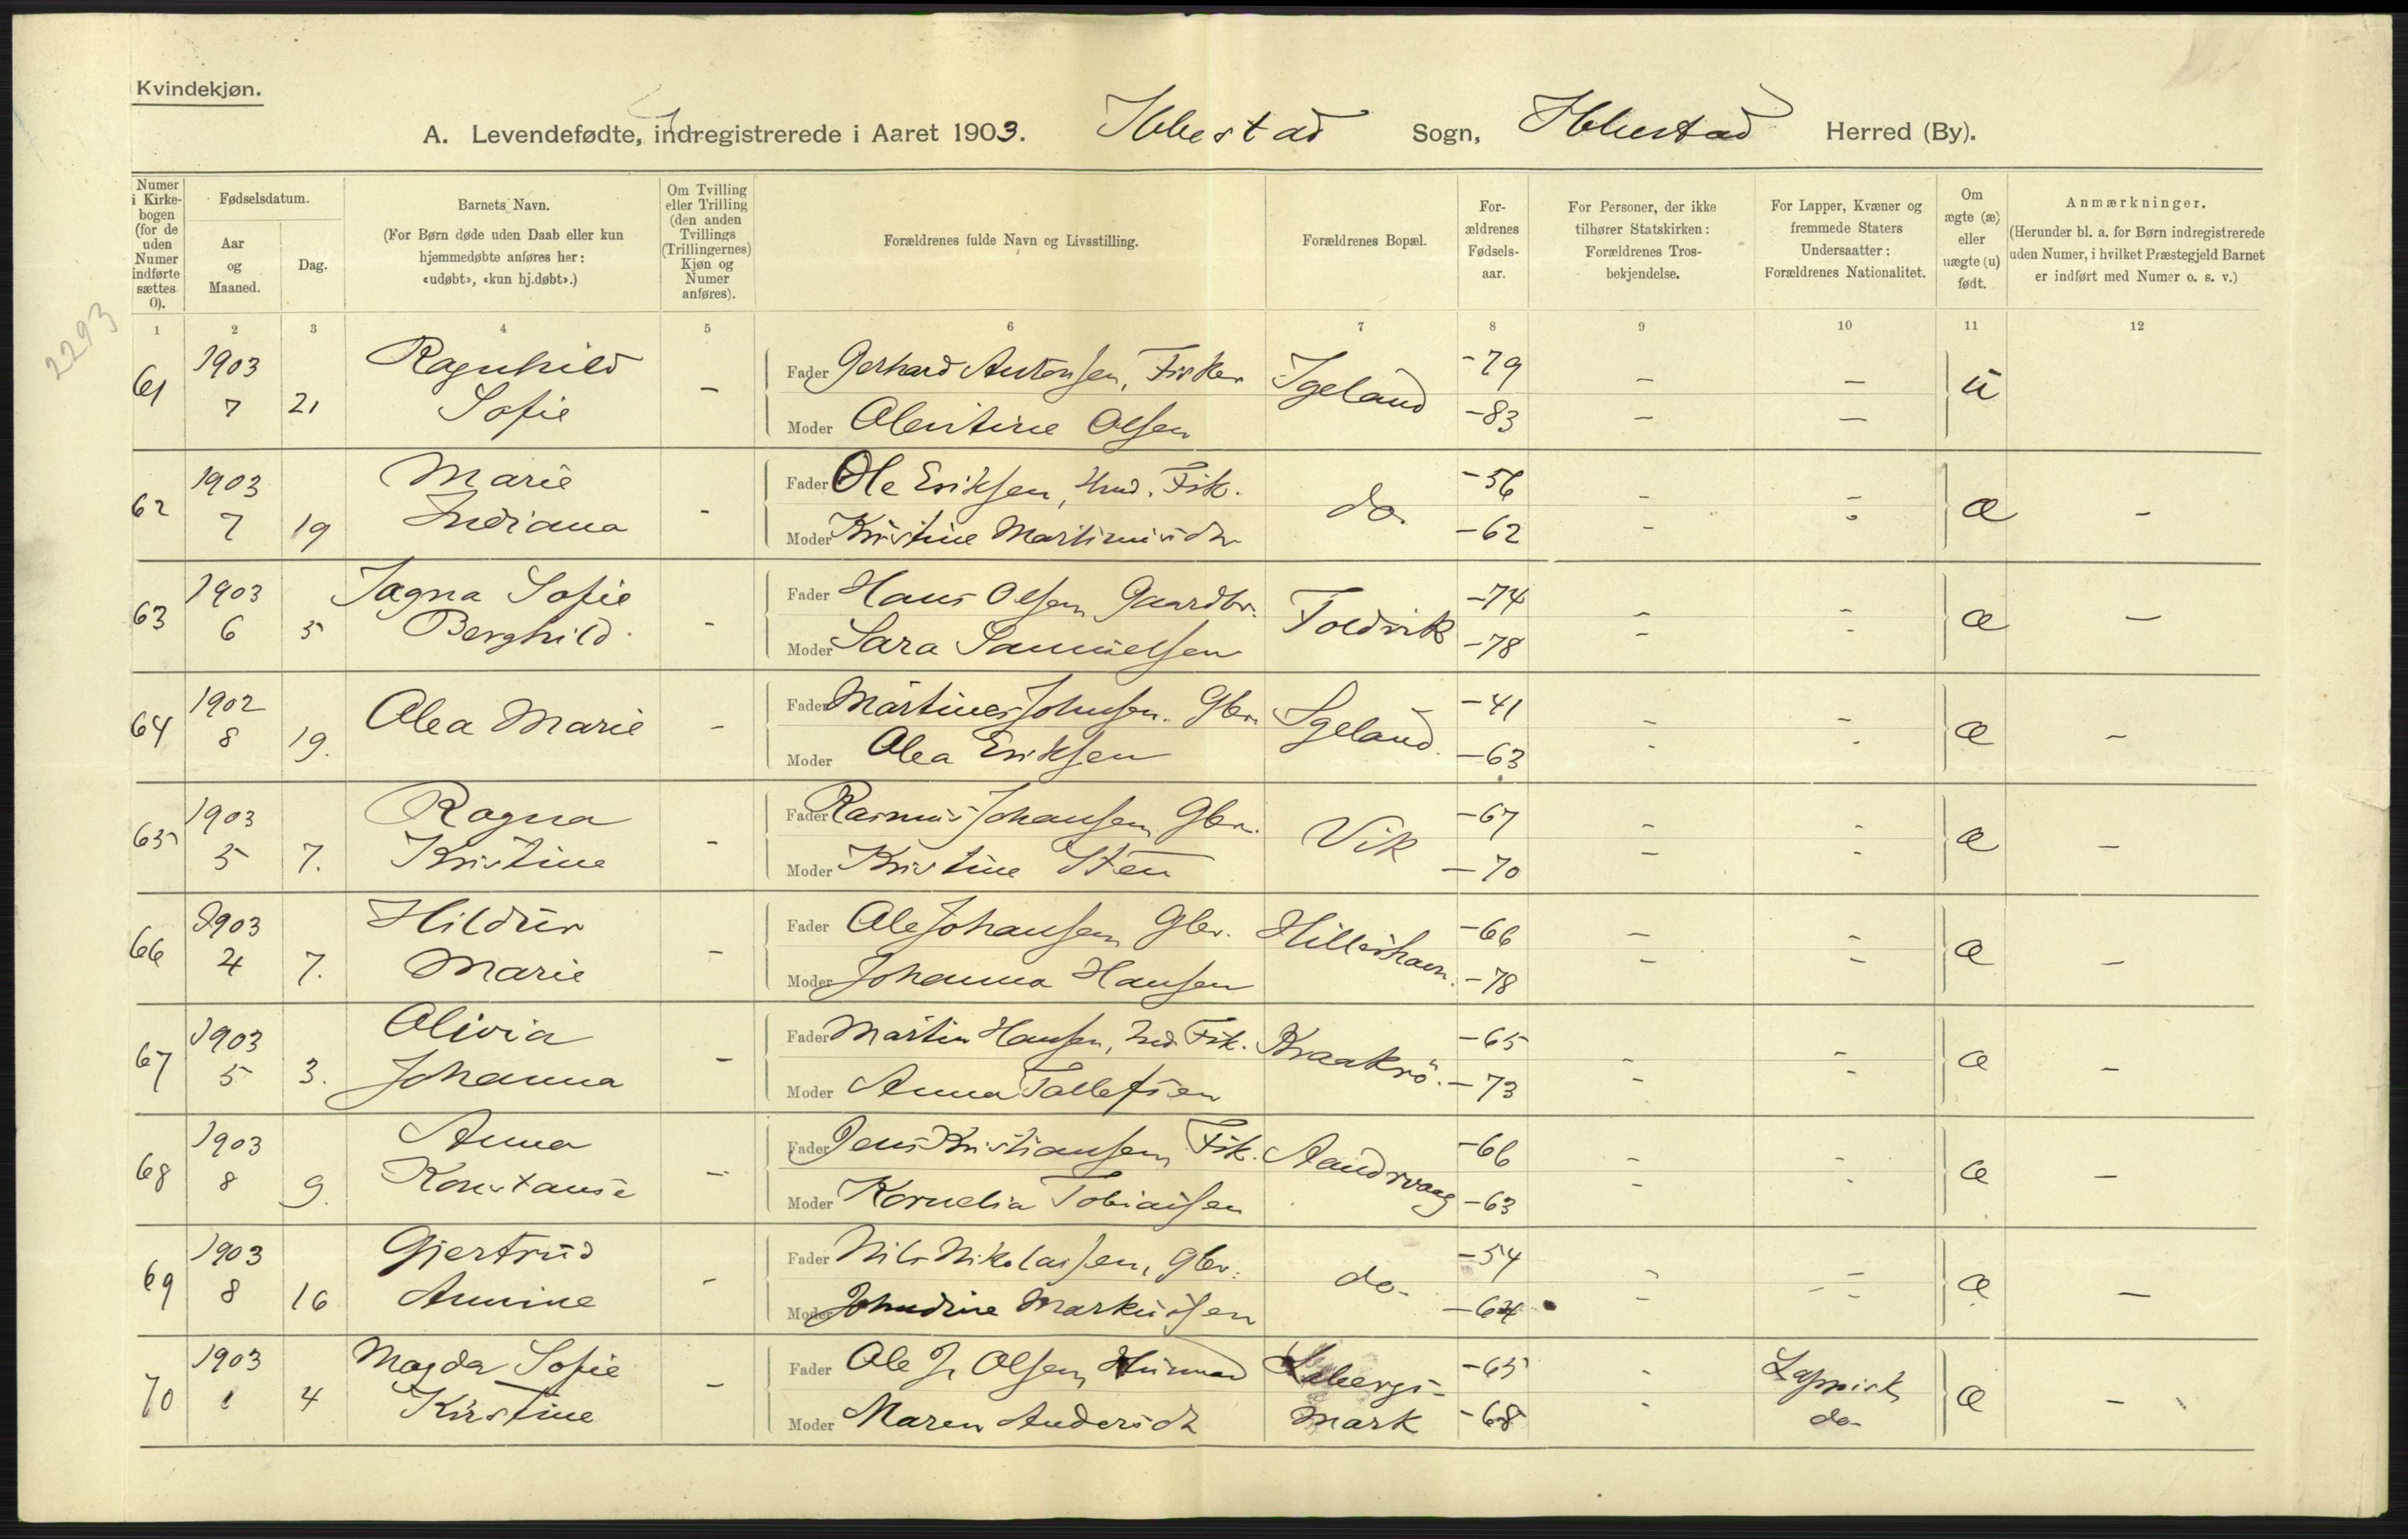 Kvindekjøn.
A. Levendefødte, indregistrerede i Aaret 1903. Ibbestad Sogn, Ibbestad Herred (By).
Numer i Kirkebogen (for de uden Numer indførte sættes 0).
Fødselsdatum.
Aar og Maaned.
Dag.
Barnets Navn.
(For Børn døde uden Daab eller kun hjemmedøbte anføres her: «udøbt», «kun hj.døbt».)
Om Tvilling eller Trilling (den anden Tvillings (Trillingernes) Kjøn og Numer anføres).
Forældrenes fulde Navn og Livsstilling.
Forældrenes Bopæl.
Forældrenes Fødselsaar.
For Personer, der ikke tilhører Statskirken: Forældrenes Trosbekjendelse.
For Lapper, Kvæner og fremmede Staters Undersaatter: Forældrenes Nationalitet.
Om ægte (æ) eller uægte (u) født.
Anmærkninger.
(Herunder bl. a. for Børn indregistrerede uden Numer, i hvilket Præstegjeld Barnet er indført med Numer o. s. v.)
1 2 3 4 5 6 7 8 9 10 11 12
2293
61 1903 7 21 Ragnhild Sofie - Fader Gerhard Antonsen, Fisker Igeland -79 - - u
Moder Olentine Olsen -83 - -
62 1903 7 19 Marie Indiana - Fader Ole Eriksen, Hmd. Fisk. do -56 - - æ -
Moder Kristine Martinusdtr -62 - -
63 1903 6 5 Jagna Sofie Berghild - Fader Hans Olsen Gaardbr. Foldvik -74 - - æ -
Moder Sara Samuelsen -78 - -
64 1902 8 19. Olea Marie - Fader Martines Johnsen. Gbr. Igeland. -41 - - æ -
Moder Olea Eriksen -63 - -
65 1903 5 7. Ragna Kristine - Fader Rasmus Johansen Gbr. Vik -67 - - æ -
Moder Kristine Sten -70 - -
66 1903 4 7. Hildur Marie - Fader Ole Johansen Gbr. Hilleshavn. -66 - - æ -
Moder Johanna Hansen -78 - -
67 1903 5 3. Olivia Johanna - Fader Martin Hansen, Ind. Fisk. Kraakrö. -65 - - æ -
Moder Anna Tollefsen -73 - -
68 1903 8 9. Anna Konstanse - Fader Jens Kristiansen Fisk. Aandrvaag -66 - - æ -
Moder Kornelia Tobiassen -63 - -
69 1903 8 16 Gjertrud Annine - Fader Nils Nikolaissen, Gbr. do- -54 - - æ -
Moder Johndrine Markussen -64 - -
70 1903 1 4 Magda Sofie Kirstine - Fader Ole J. Olsen Husmand -65 - Lappisk æ -
Moder Maren Andersdt mark -68 - do-